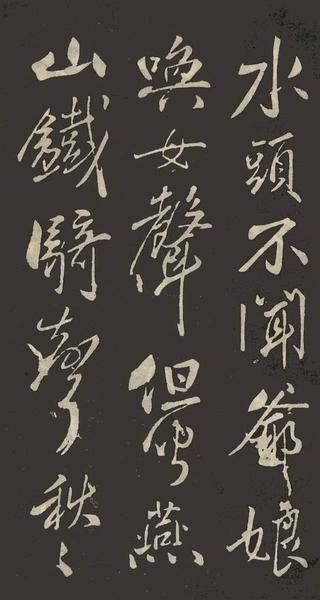 水頭不聞爺娘
喚女聲但聞燕
山鐵騎聲秋〻